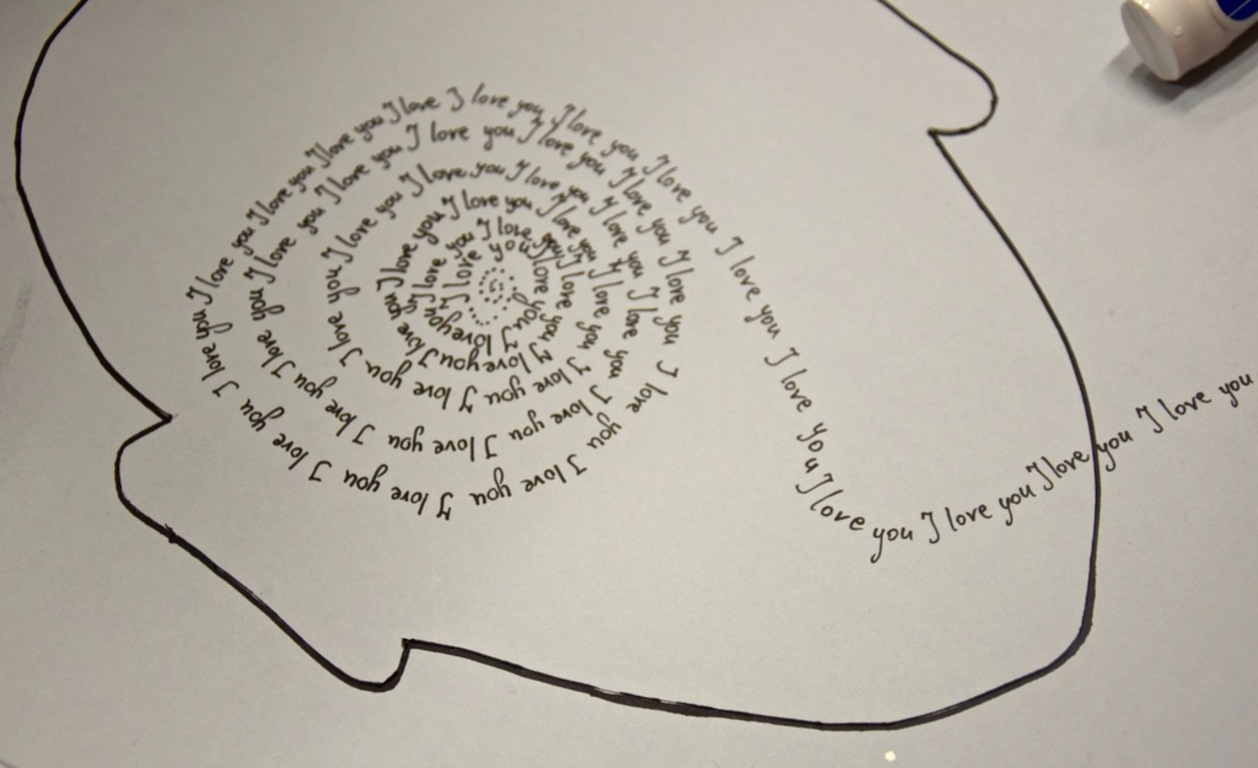 I love you I love you I love you I love you I love you I love you I love you I love you I love you I love you I love you I love you I love you I love you I love you I love you I love you I love you I love you I love you I love you I love you I love you I love you I love you I love you I love you I love you I love you I love you I love you I love you I love you I love you I love you I love you I love you I love you I love you I love I love you I love you I love you I love you I love you I love you I love you I love you I love you